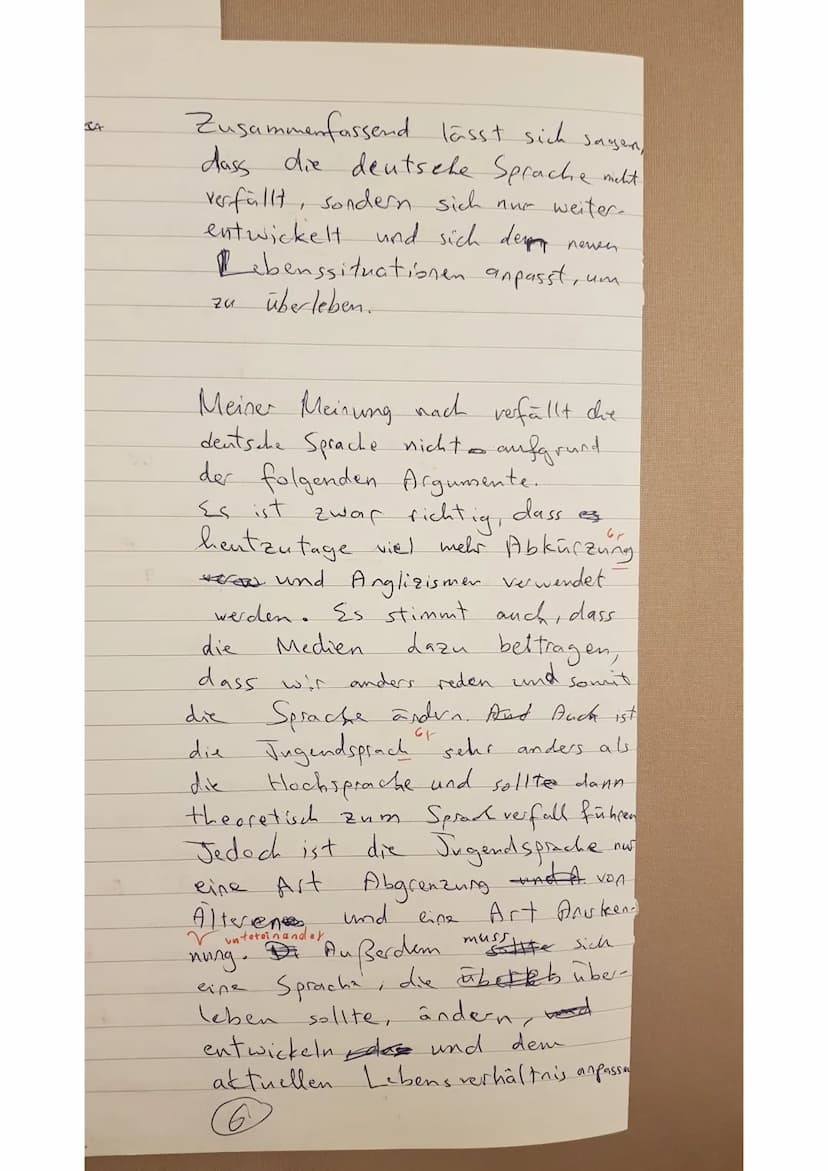 Zusammenfassend lässt sich sagen,
dass die deutsche Sprache nicht
verfällt, sondern sich nur weiter-
entwickelt und sich den neuen
Lebenssituationen anpasst, um
zu überleben.
Meiner Meinung nach verfällt die
deutsche Sprache nicht aufgrund
der folgenden Argumente.
Es ist zwar richtig, dass
Gr
heutzutage viel mehr Abkürzung
und Anglizismen verwendet
werden. Es stimmt auch, dass
die Medien dazu beitragen,
dass wir anders reden und somit
die Sprache ändern. Auch ist
Gr
die Jugendsprach sehr anders als
die Hochsprache und sollte dann
theoretisch zum Sprachverfall führen
Jedoch ist die Jugendsprache nur
eine Art Abgrenzung von
Älteren und eine Art Anerken-
untereinander
nung. Außerdem muss sich
eine Sprache, die über-
leben sollte, ändern,
entwickeln und dem
aktuellen Lebensverhältnis anpassen
6